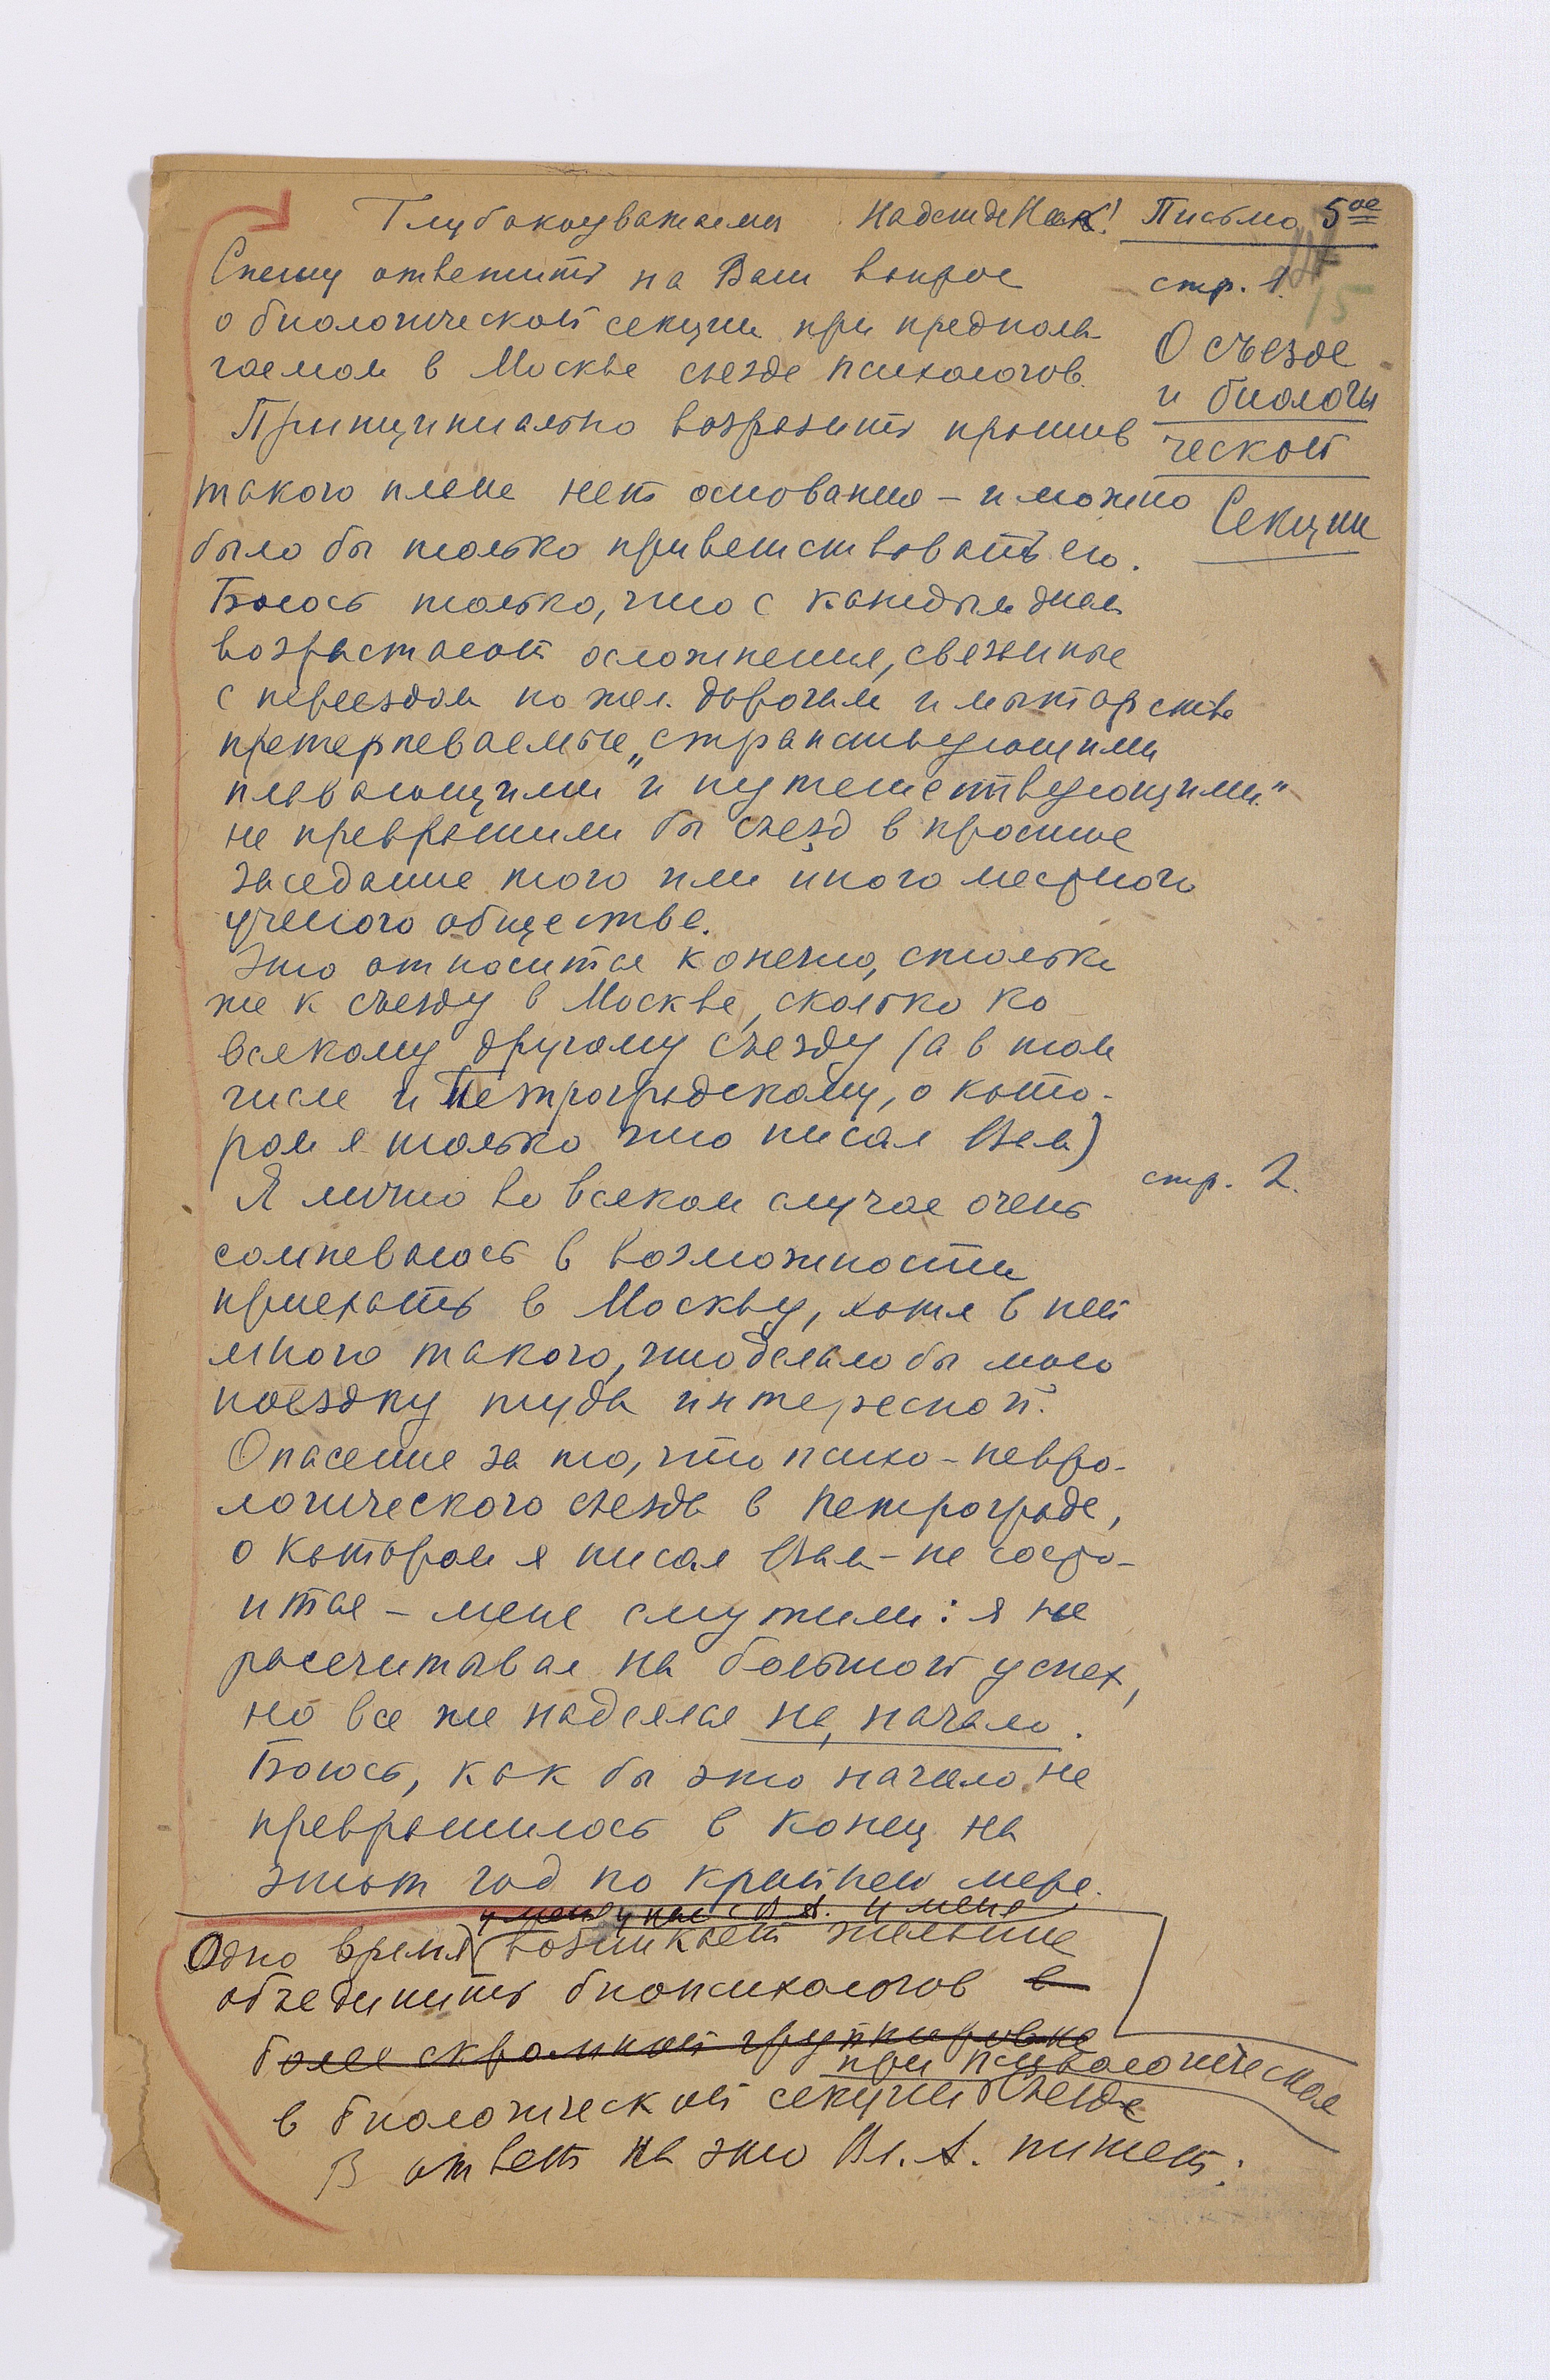 Глубокоуважаемая Надежда Ник! Письмо 5ое
стр. 1.
15
О съезде
и биологи
ческой
Секции
Спешу ответить на Ваш вопрос
о биологической секции при предпола-
гаемом в Москве съезде психологов.
Принципиально возразить против
такого плана нет основания – и можно
было бы только приветствовать его.
Боюсь только, что с каждым днем
возрастают осложнения, связанные
с переездом по жел. дорогам и мытарства
претерпеваемые „странствующими
плавающими и путешествующими“
не превратили бы съезд в простое
заседание того или иного местного
ученого общества.
Это относится конечно, столько
же к съезду в Москве, сколько ко
всякому другому съезду (а в том
числе и Петроградскому, о кото-
ром я только что писал Вам)
стр. 2.
Я лично во всяком случае очень
сомневаюсь в возможности
приехать в Москву, хотя в ней
много такого, что делало бы мою
поездку туда интересной.
Опасение за то, что психо-невро-
логического съезда в Петрограде,
о котором я писал Вам – не состо-
ится – меня смутили: я не
рассчитывал на большой успех,
но все же надеялся на начало.
Боюсь, как бы это начало не
превратилось в конец на
этот год по крайней мере.
у меня у нас с В. А. и меня
Одно время возникает желание
объединить биопсихологов в
более скромной группировке
при психологическая
в биологической секции съезде
В ответ на это Вл. А. пишет: